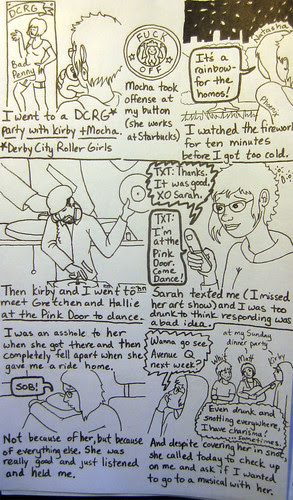 DCRG
Bad
Penny
I went to a DCRG*
party with kirby + Mocha.
*Derby City Roller Girls
FUCK
OFF
Mocha took
offense at
my button
(she works
at Starbucks)
Natasha
It's a
rainbow-
for the
homos!
Phoenix
I watched the fireworks
for ten minutes
before I got too cold.
Then kirby and I went to
meet Gretchen and Hallie
at the Pink Door to dance.
TXT: Thanks.
It was good.
XO Sarah.
TXT:
I'm
at the
Pink
Door.
Come
Dance!
Sarah texted me (I missed
her art show) and I was too
drunk to think responding was
a bad idea.
I was an asshole to her
when she got there and then
completely fell apart when she
gave me a ride home.
SOB!
Not because of her, but because
of everything else. She was
really good and just listened
and held me.
Wanna go see
Avenue Q
next week?
at my Sunday
dinner party
Matt
Kirby
Even drunk and
snotting everywhere,
I have charisma!
...sometimes.
And despite covering her in snot,
she called today to check up
on me and ask if I wanted
to go to a musical with her.